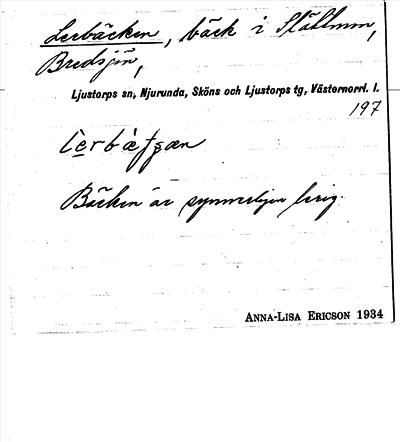 Lerbäcken, bäck i Slättmon,
Bredsjön,
Ljustorps sn, Njurunda, Sköns och Ljustorps tg, Västernorrl. l.
197
Bäcken är synnerligen lerig.
ANNA-LISA ERICSON 1934